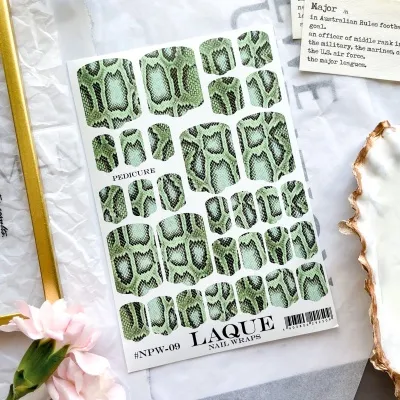 Major
in Australian Rules footba
goal.
an officer of middle rank in
the military, the marines, o
the U.S. air force.
the major leagues.
PEDICURE
#NPW-09
LAQUE
NAIL WRAPS